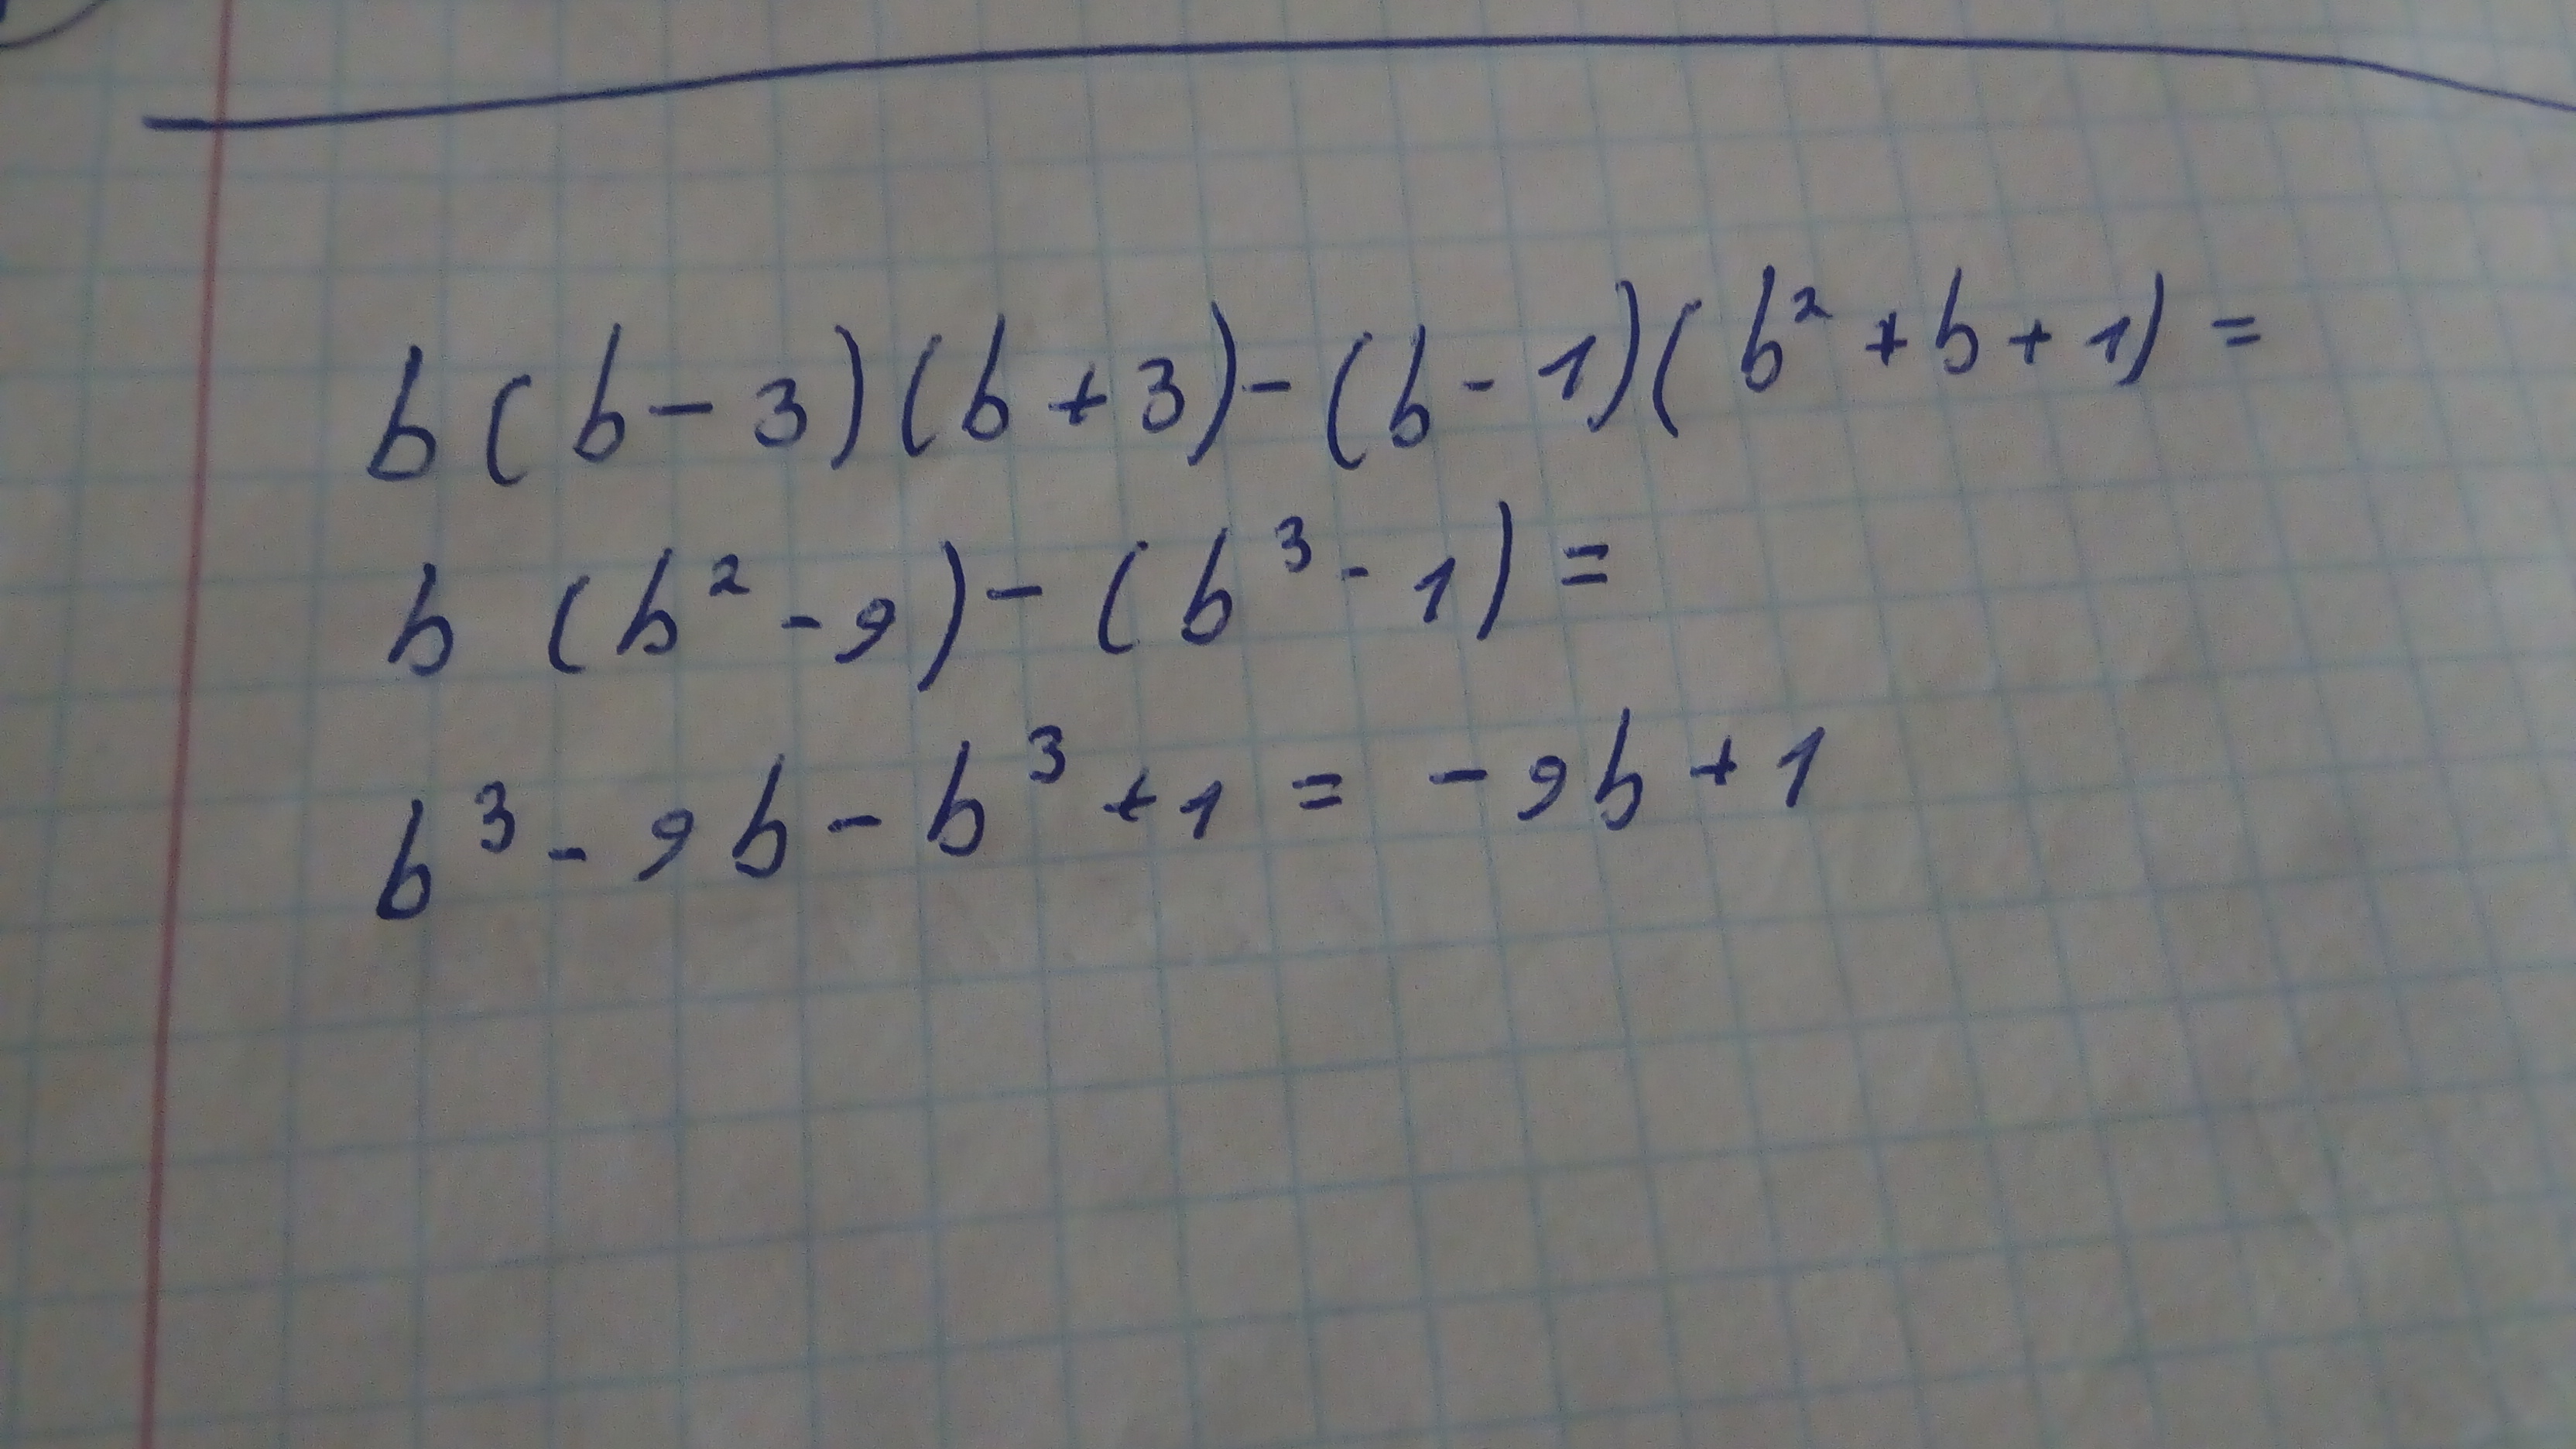 b(b-3)(b+3)-(b-1)(b²+b+1)=
b(b²-9)-(b³-1)=
b³-9b-b³+1=-9b+1